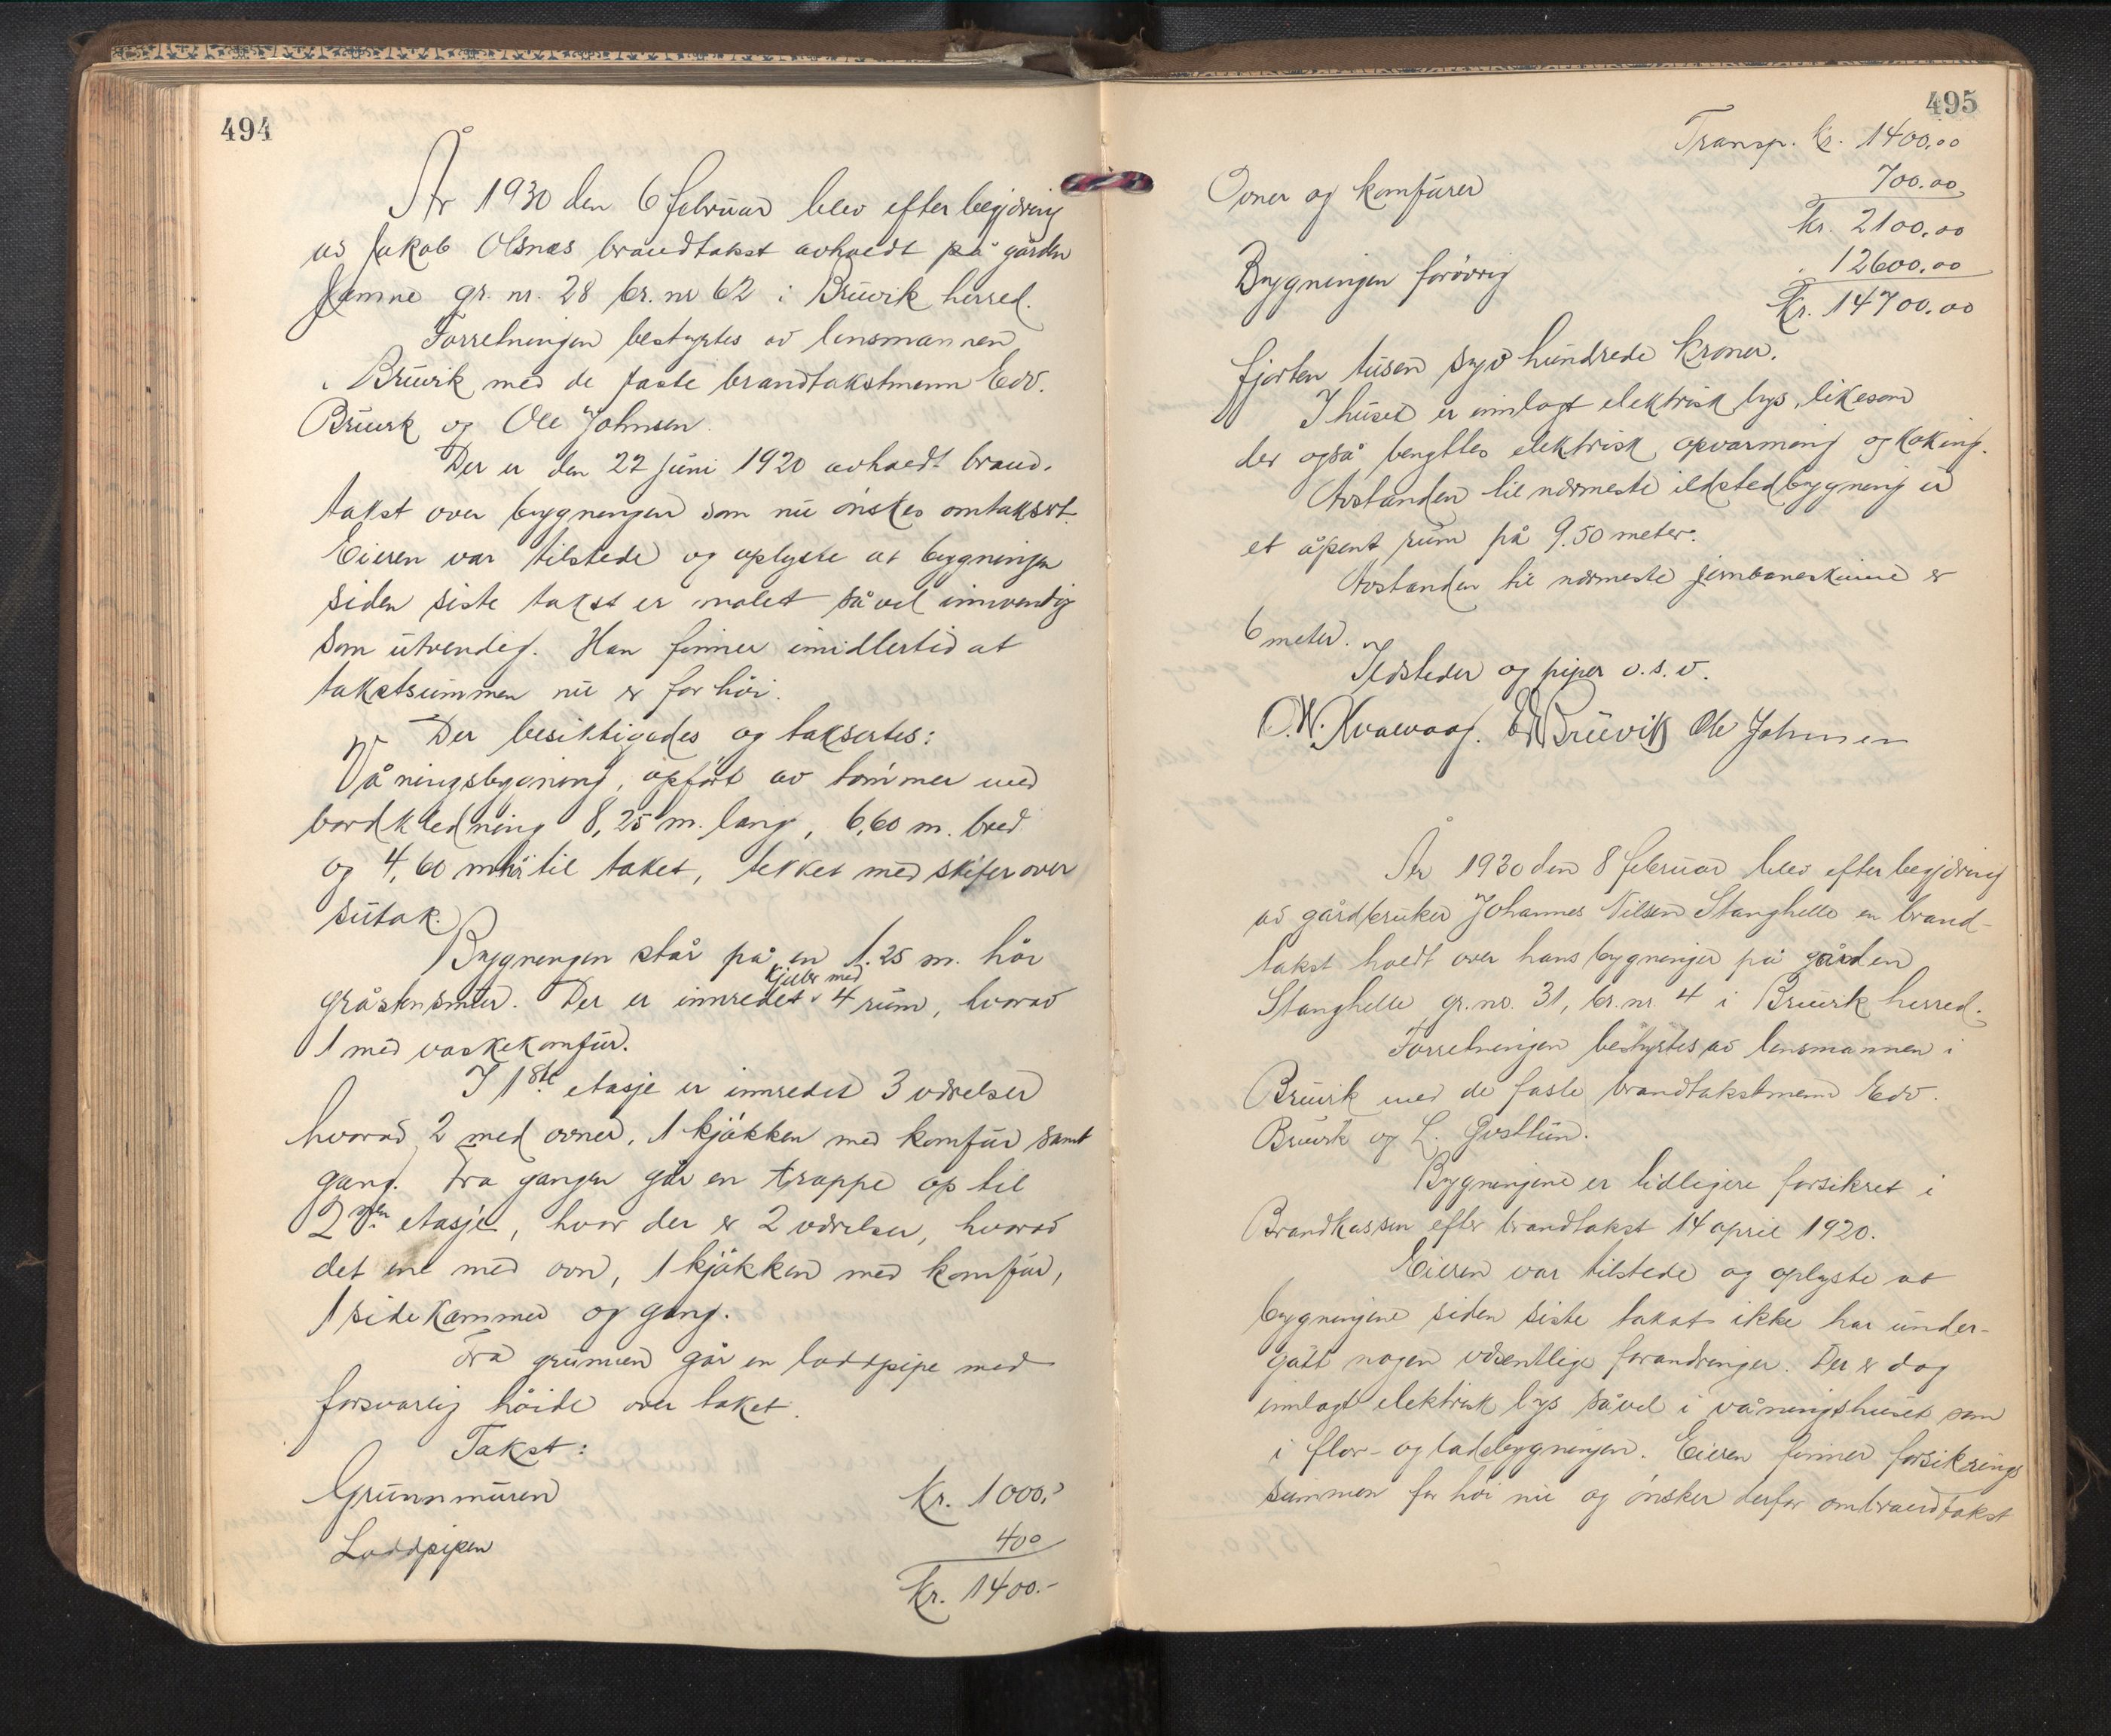 494
År 1930 den 6 februar blev efter begjæring
av Jakob Olsnæs brandtakst avholdt på gården
Jamne gr. nr. 28 br. nr 62 i Bruvik herred.
Forretningen bestyrtes av lensmannen
i Bruvik med de faste brandtakstmenn Edv.
Bruvik og Ole Johnsen.
Der er den 22 juni 1920 avholdt brand-
takst over bygningen som nu ønskes omtaksert.
Eieren var tilstede og oplyste at bygningen
siden siste takst er malet såvel innvendig
som utvendig. Han finner imidlertid at
takstsummen nu er for høi.
Der besiktigedes og taksertes:
Våningsbygning, opført av tømmer med
bordkledning 8,25 m. lang, 6,60 m. bred
og 4,60 m høi til taket, tekket med skifer over
sutak.
Bygningen står på en 1.25 m. høi
gråstensmur. Der er innredet kjeller med 4 rum, hvorav
1 med vaskekomfur.
I 1ste etasje er innredet 3 værelser
hvorav 2 med ovner, 1 kjøkken med komfur samt
gang. Fra gangen går en trappe op til
2nen etasje, hvor der er 2 værelser, hvorav
det ene med ovn, 1 kjøkken med komfur,
1 sidekammer og gang.
Fra grunnen går en loddpipe med
forsvarlig høide over taket.
Takst:
Grunnmuren Kr. 1000.-
Loddpipen 400
Kr. 1400.-
495
Transp. Kr. 1400.00
Ovner og komfurer 700.00
Kr. 2100.00
Bygningen forøvrig 12600.00
Kr. 14700.00
fjorten tusen syv hundrede kroner.
I huset er innlagt elektrisk lys, likesom
der også benyttes elektrisk opvarming og koking.
Avstanden til nærmeste ildstedbygning er
et åpent rum på 9.50 meter.
Avstanden til nærmeste jernbaneskinne er
6 meter.
Ildsteder og piper o.s.v.
O.W. Kvalvaag. Ed Bruvik Ole Johnsen
År 1930 den 8 februar blev efter begjæring
av gårdbruker Johannes Nilsen Stanghelle en brand-
takst holdt over hans bygninger på gården
Stanghelle gr. nr. 31, br. nr. 4 i Bruvik herred.
Forretningen bestyrtes av lensmannen i
Bruvik med de faste brandtakstmenn Edv.
Bruvik og L.
Bygningene er tidligere forsikret i
Brandkassen efter brandtakst 14 april 1920.
Eieren var tilstede og oplyste at
bygningene siden siste takst ikke har under-
gått nogen væsentlige forandringer. Der er dog
innlagt elektrisk lys såvel i våningshuset som
i flor- og ladebygningen. Eieren finner forsikrings
summen for høi nu og ønsker derfor ombrandtakst